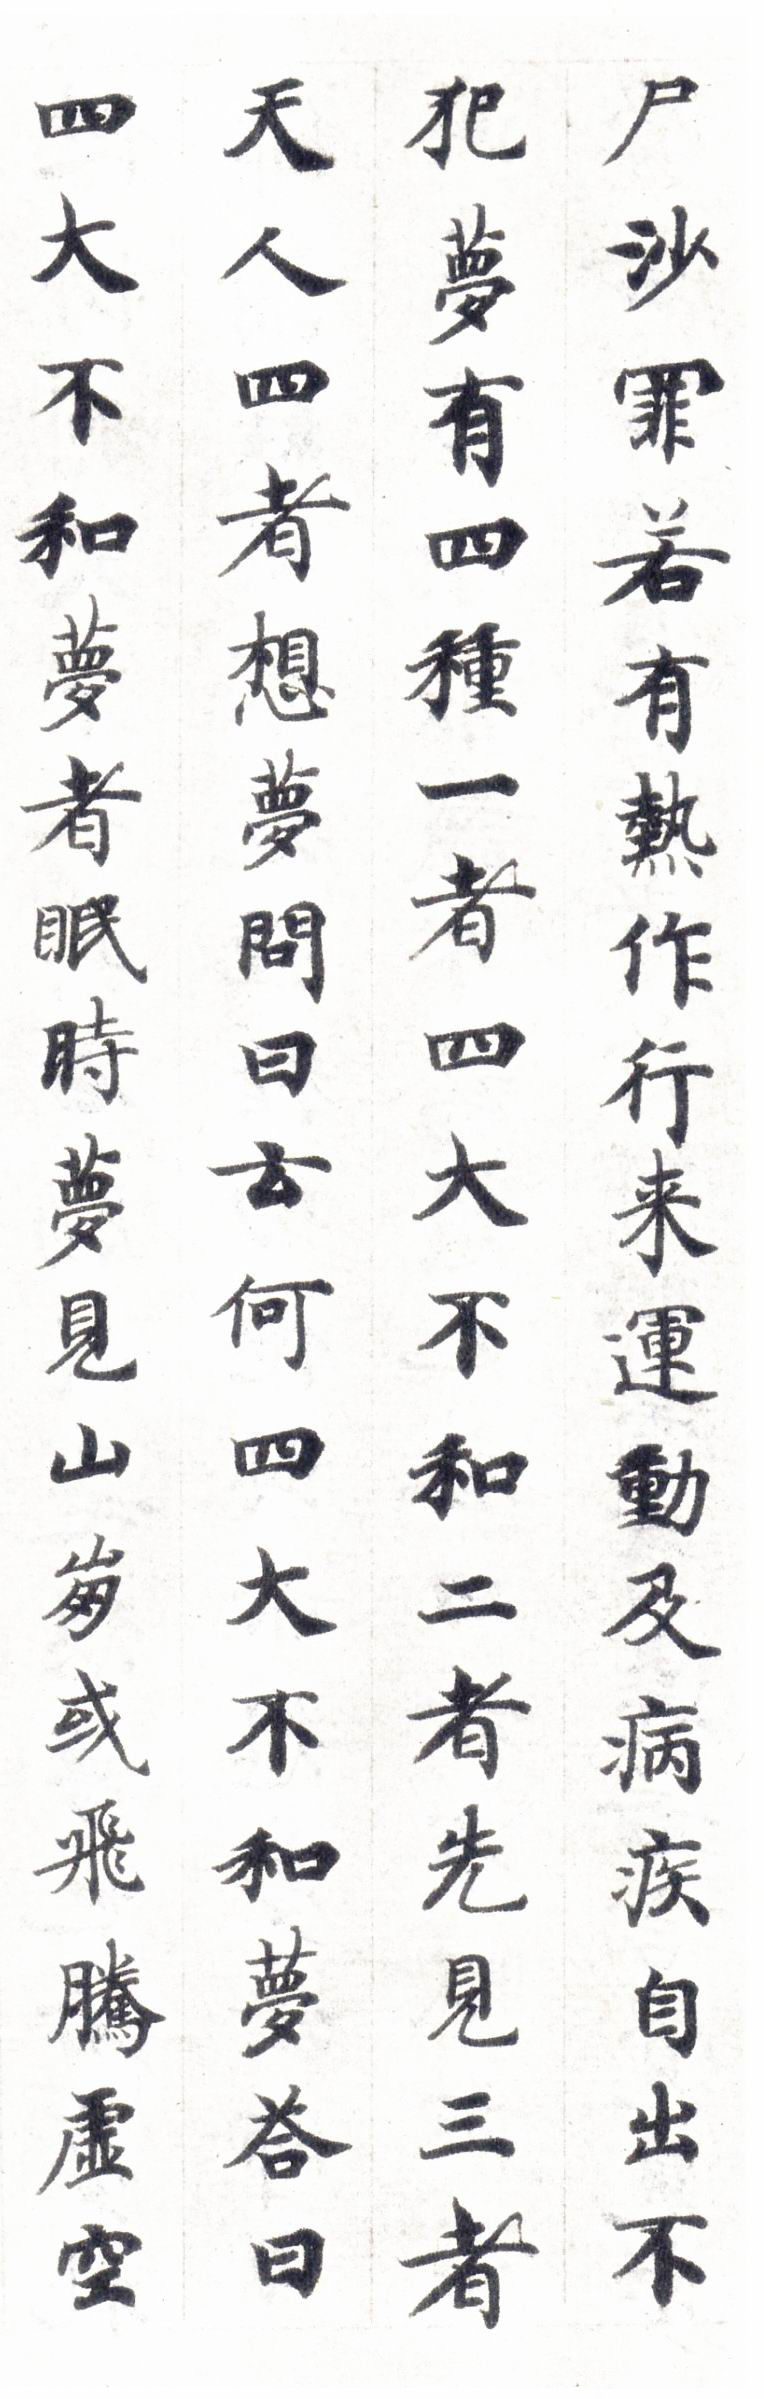 尸沙罪若有熱作行来運動及病疾自出不
犯夢有四種一者四大不和二者先見三者
天人四者想夢問曰云何四大不和夢荅曰
四大不和夢者眠時夢見山崩或飛騰虛空